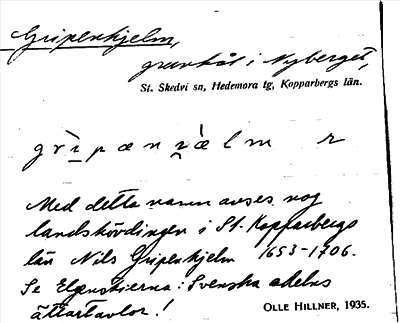 Gripenhjelm,
gruvhål i Nyberget,
St. Skedvi sn, Hedemora tg, Kopparbergs län.
Med detta namn avses nog
landshövdingen i St. Kopparbergs
län Nils Gripenhjelm 1653-1706.
Se Elgenstierna: Svenska adelns
ättartavlor!
OLLE HILLNER, 1935.